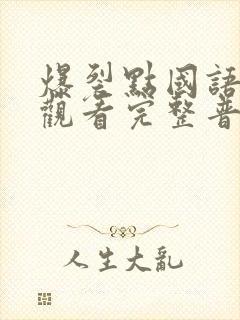 爆裂點國語
觀看完整普
人生大亂